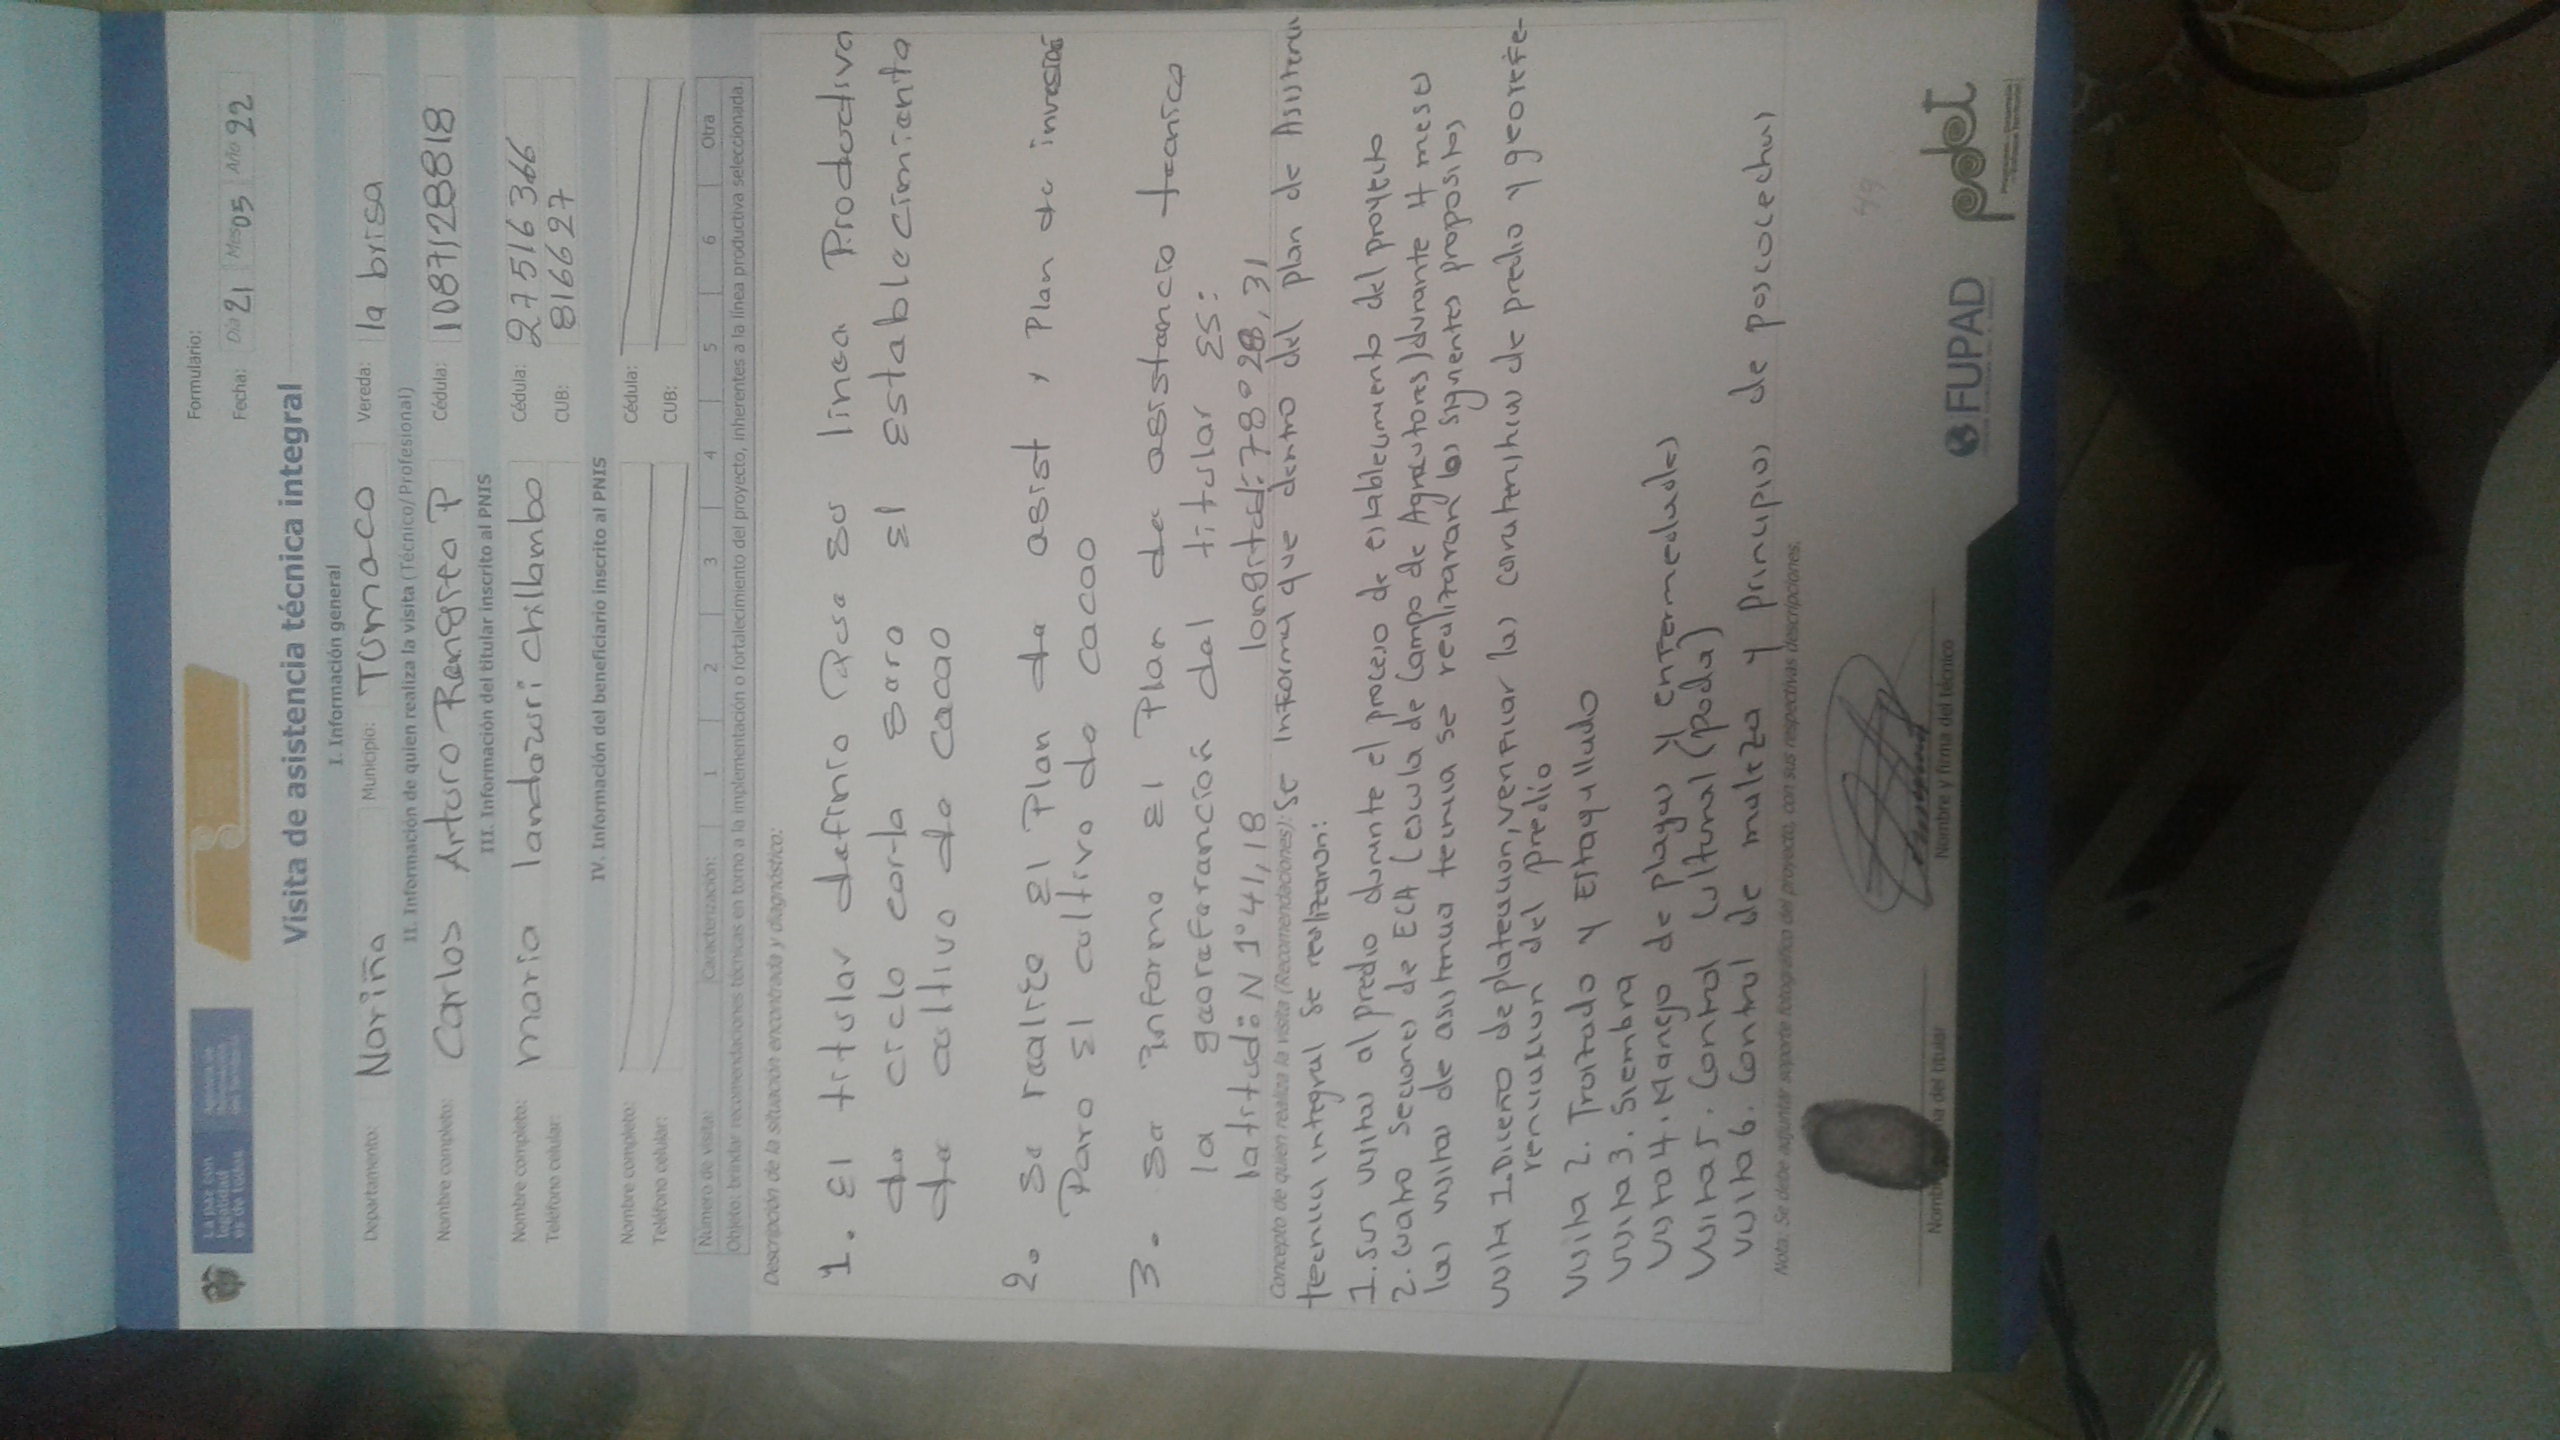 La paz con legalidad es de todos
Formulario:
Fecha: Día 21 Mes 05 Año 22
Visita de asistencia técnica integral
I. Información general
Departamento: Nariña Municipio: Tumaco Vereda: la brisa
II. Información de quien realiza la visita (Técnico/Profesional)
Nombre completo: Carlos Arturo Rengifo P Cédula: 1087128818
III. Información del titular inscrito al PNIS
Nombre completo: maria landazuri chillambo Cédula: 27516366
Teléfono celular: CUB: 816627
IV. Información del beneficiario inscrito al PNIS
Nombre completo: Cédula:
Teléfono celular: CUB:
Número de visita: Caracterización: 1 2 3 4 5 6 Otra
Objeto: brindar recomendaciones técnicas en torno a la implementación o fortalecimiento del proyecto, inherentes a la línea productiva seleccionada.
Descripción de la situación encontrada y diagnóstico:
1. El titular definio que su linea Productiva
de ciclo corto sara el establecimiento
de cultivo de cacao
2. se realizo el Plan de asist y Plan de
Para el cultivo de cacao
3. se informo el Plan de asistencia tecnica
la georeferanciación del titular es:
latitud: N 1°41,18 longitud: 78°028,31
Concepto de quien realiza la visita (Recomendaciones): Se informa que dentro del plan de Asistencia
tecnica integral se realizaran:
1. seis visitas al predio durante el proceso de establecimiento del proyecto
2. cuatro secciones de ECA (escuela de campo de Agricultores) durante 4 meses
las visitas de asistencia tecnica se realizaran los siguientes propositos
visita 1. Diceño de plateacion, verificar las caracteristicas de predio y georefe-
renciacion del predio
Visita 2. Trazado y Estaquillado
visita 3. Siembra
visita 4. Manejo de plagas y enfermedades
Visita 5. Control cultural (poda)
visita 6. Control de maleza y principios de poscocechas
Nota: Se debe adjuntar soporte fotográfico del proyecto, con sus respectivas descripciones.
del titular
Nombre y firma del técnico
FUPAD
pdet